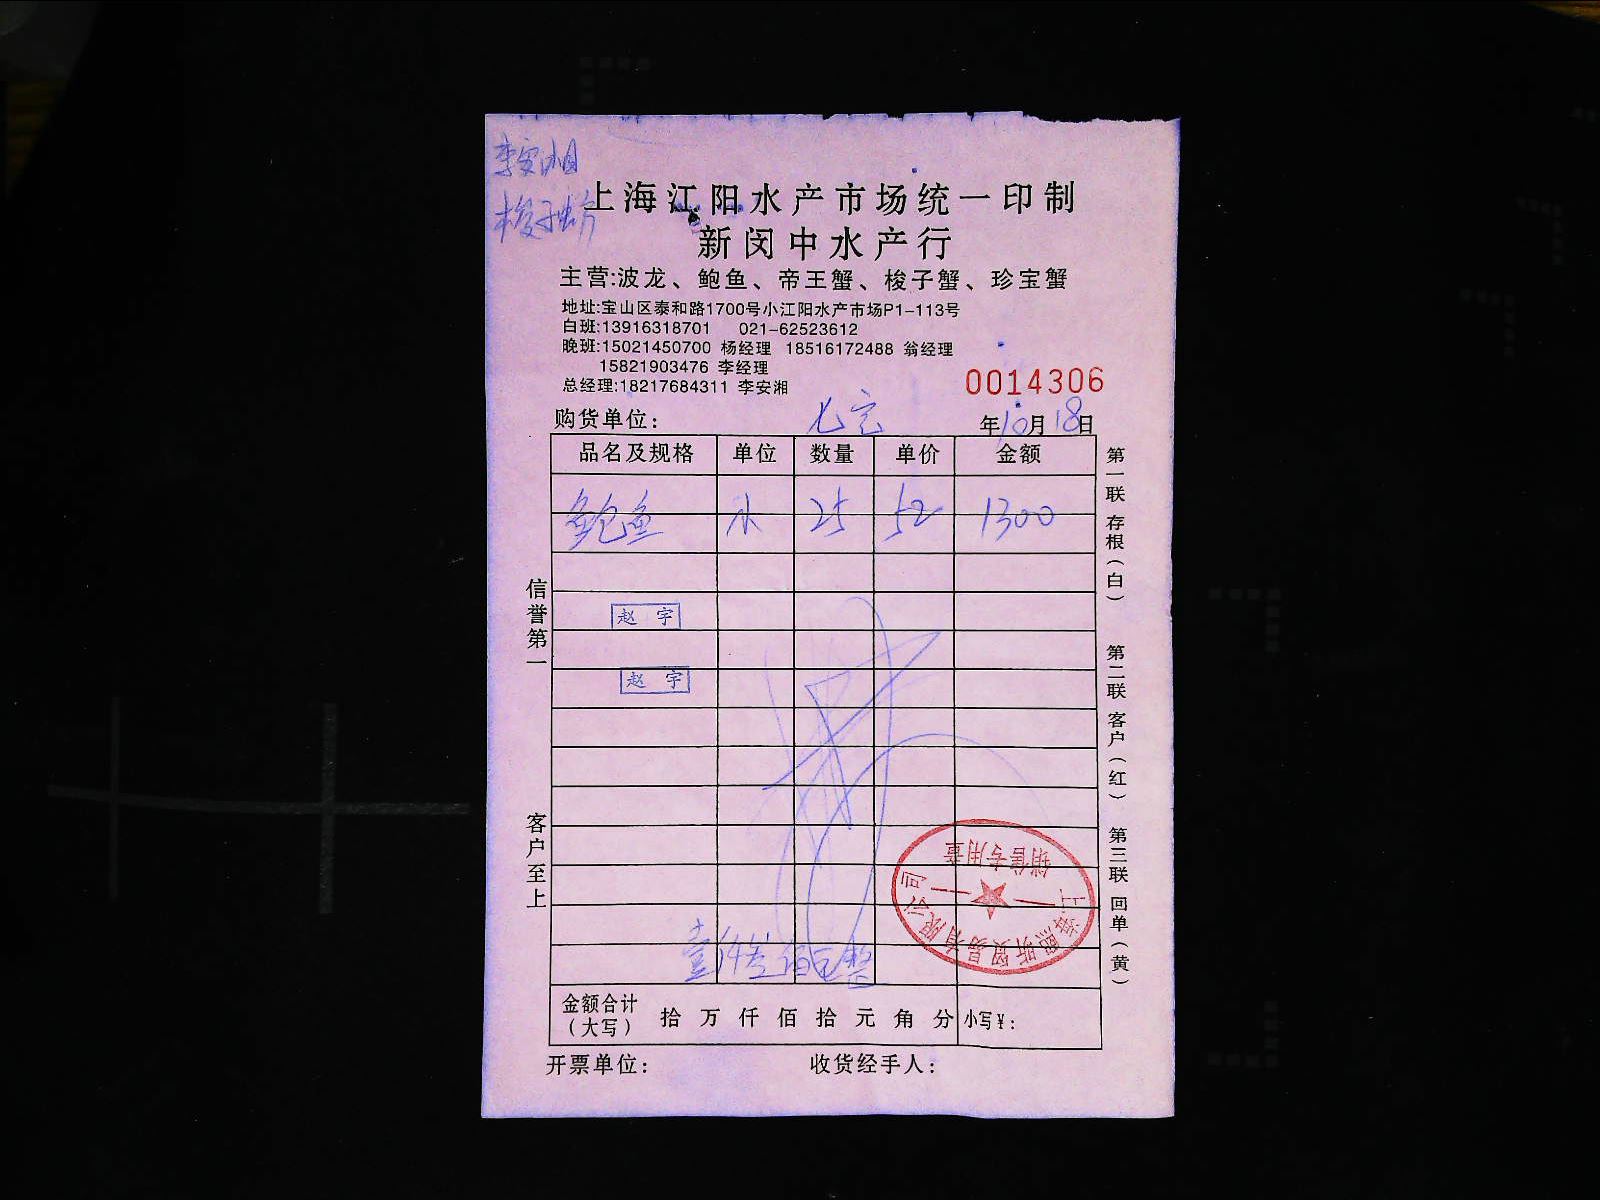 李安湘
梭子蟹
上海江阳水产市场统一印制
新闵中水产行
主营:波龙、鲍鱼、帝王蟹、梭子蟹、珍宝蟹
地址:宝山区泰和路1700号小江阳水产市场P1-113号
白班:13916318701 021-62523612
晚班:15021450700 杨经理 18516172488 翁经理
15821903476 李经理
总经理:18217684311 李安湘
0014306
购货单位: 七宝 年10月18日
品名及规格 单位 数量 单价 金额
鲍鱼 25 52 1300
赵 宇
赵 宇
壹仟叁佰元整
金额合计（大写） 拾 万 仟 佰 拾 元 角 分 小写¥:
开票单位: 收货经手人:
信誉第一
客户至上
第一联 存根（白）
第二联 客户（红）
第三联 回单（黄）
销售专用章